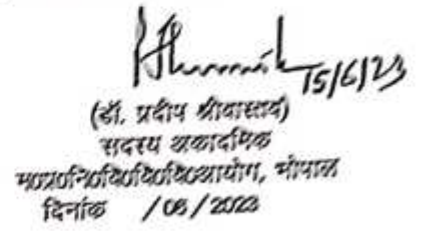 15/6/23
(डॉ. प्रदीप श्रीवास्तव)
सदस्य अकादमिक
म०प्र०नि०वि०वि०वि०आयोग, भोपाल
दिनांक /06/2023